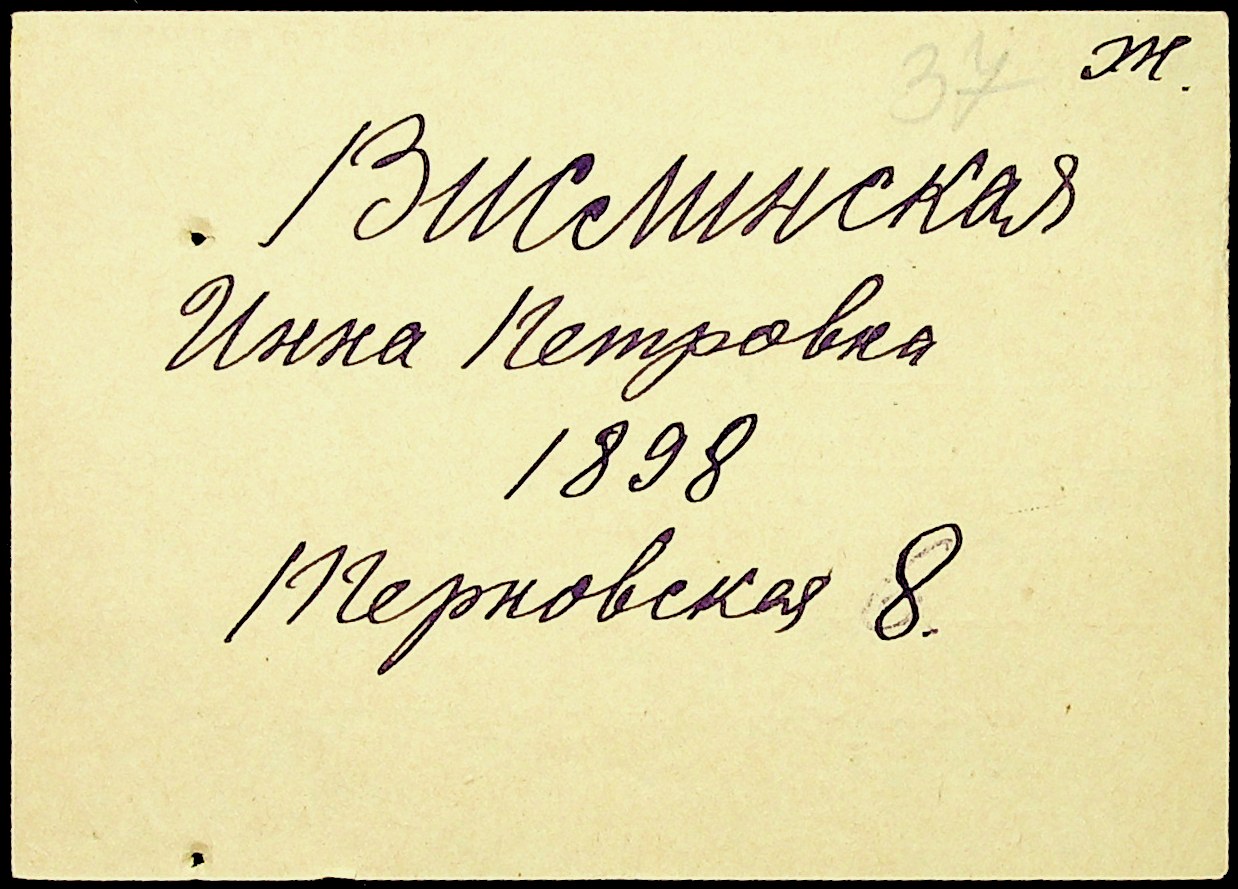 37 ж.
Висминская
Инна Петровна
1898
Перновская 8.